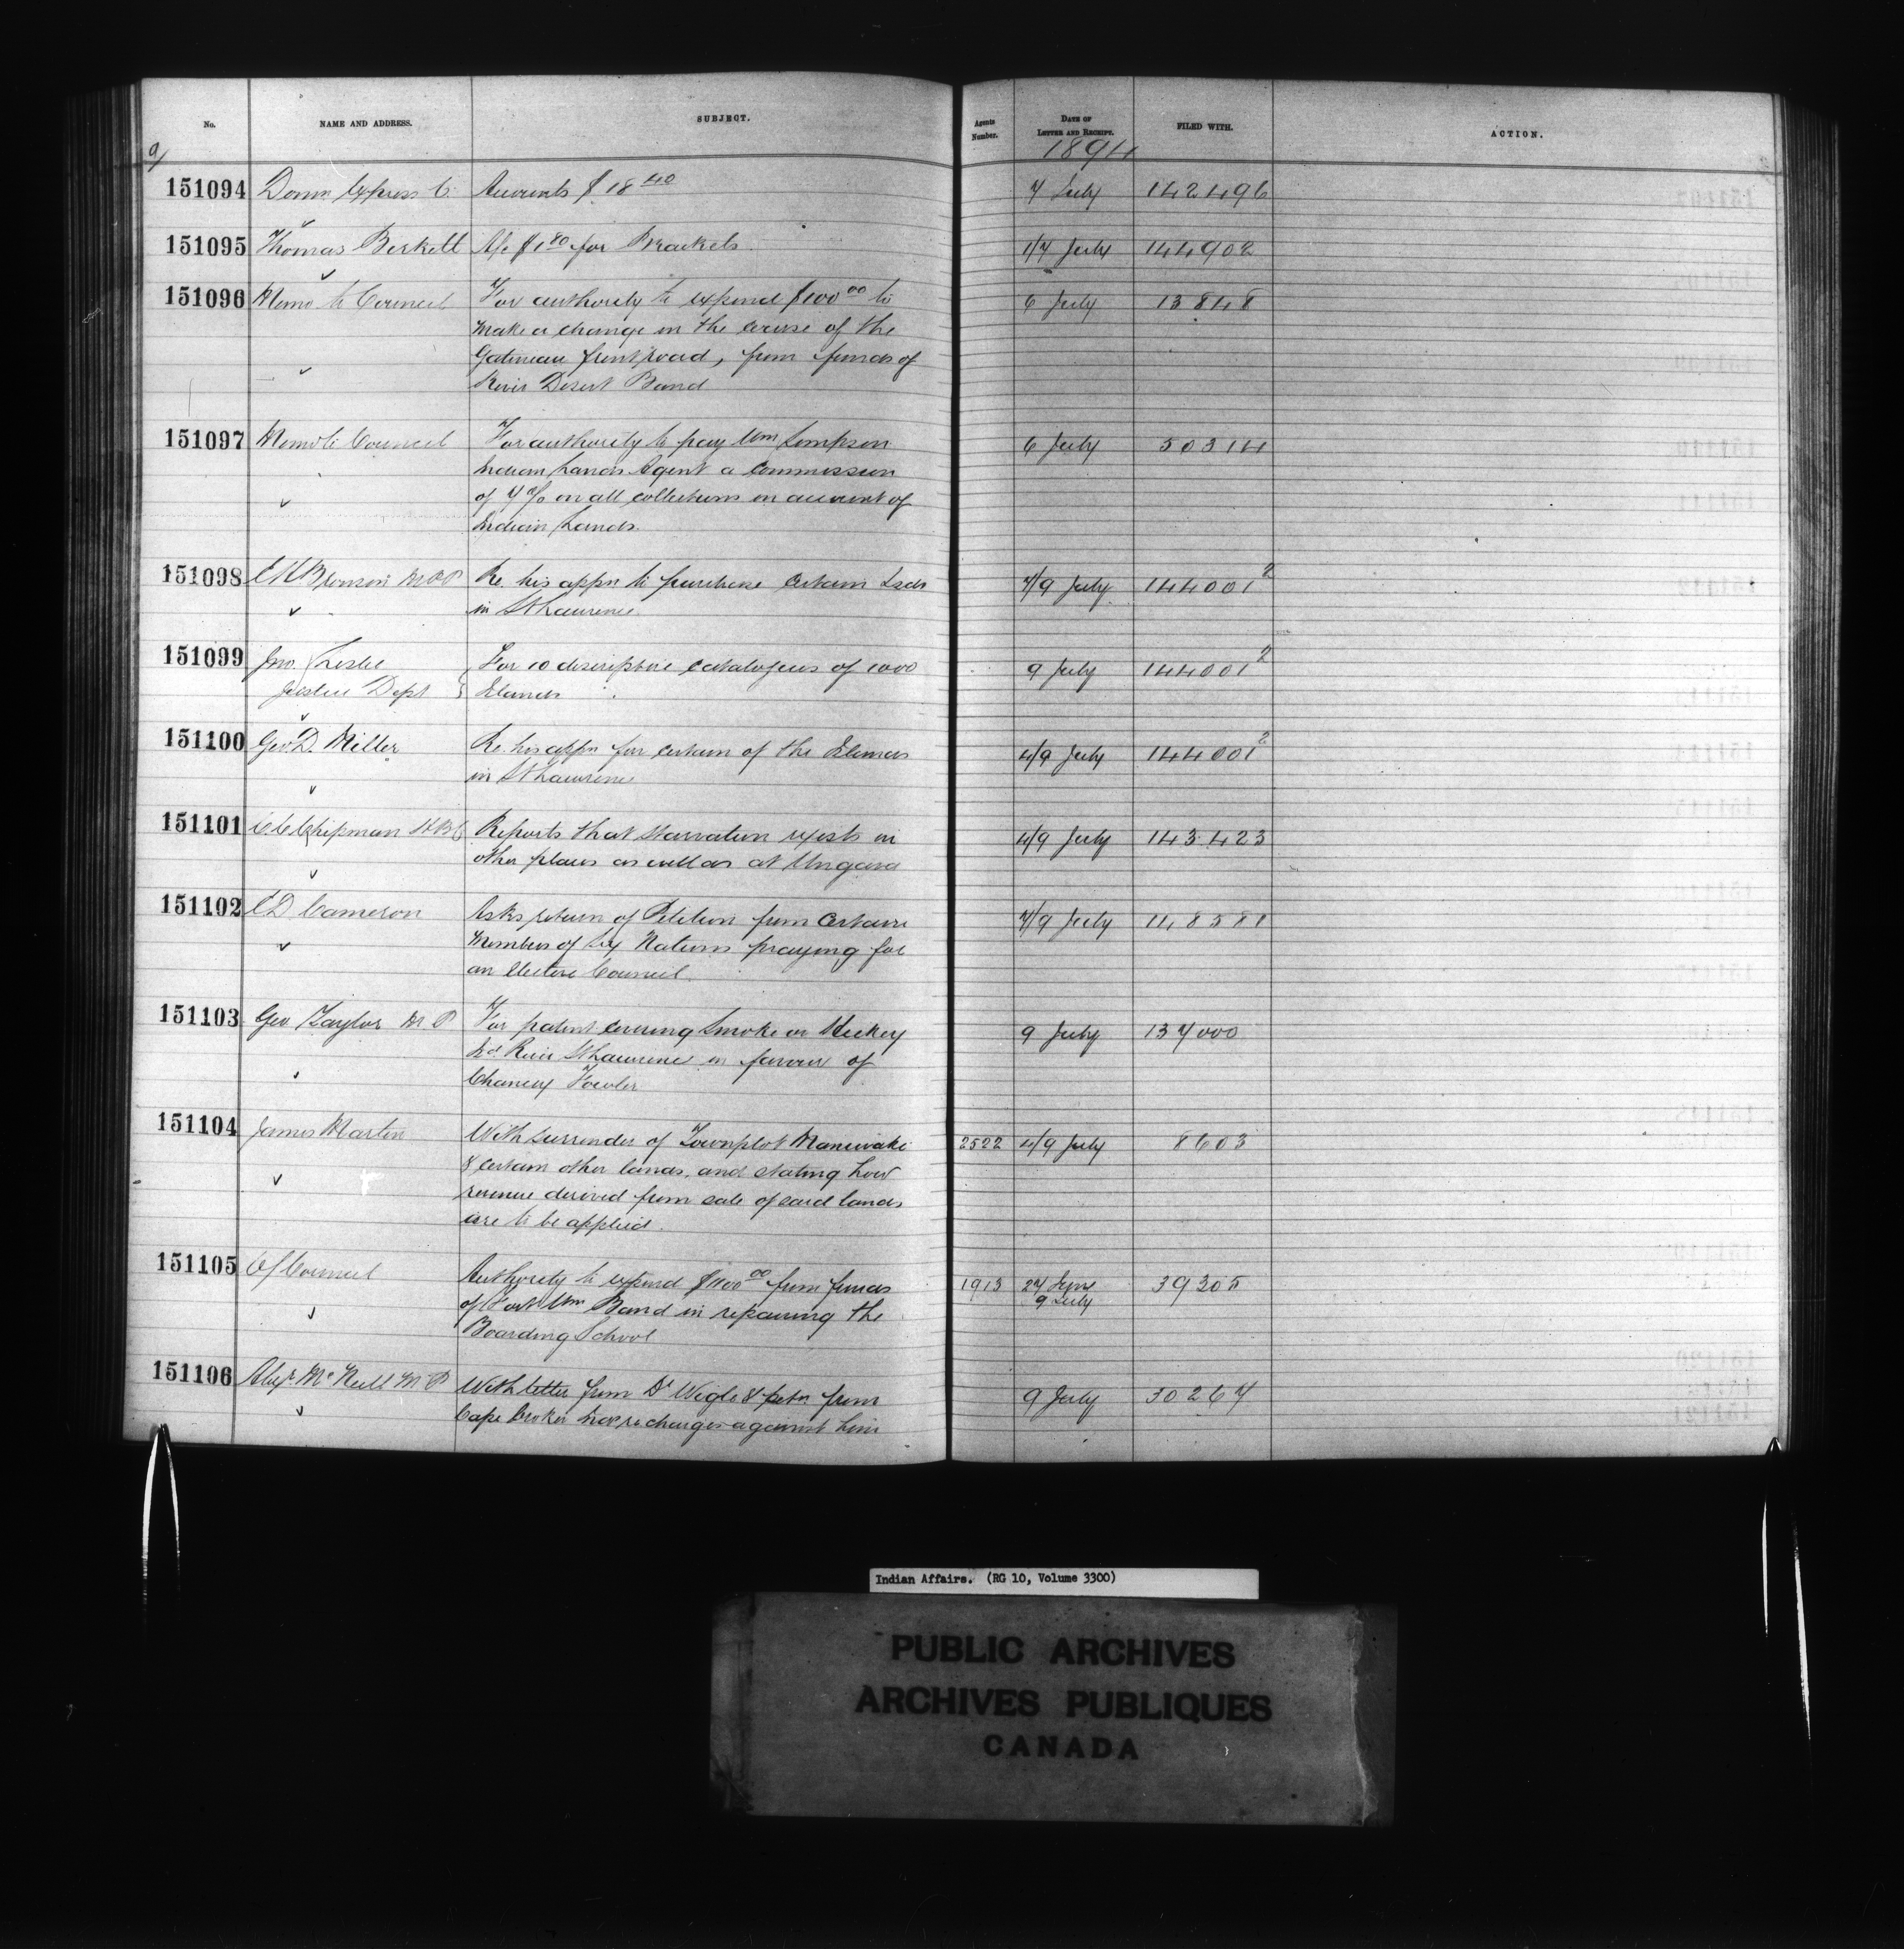 No. NAME AND ADDRESS. SUBJECT. Agents Number. DATE OF LETTER AND RECEIPT. FILED WITH. ACTION.
9/ 1894
151094 Domn Express Co. Accounts $18 40 7 July 142496
151095 Thomas Birkett A/c $1 80 for Brackets 1/7 July 144902
151096 Memo to Council For authority to expend $100 00 to 6 July 13848
make a change in the course of the
Gatineau front road, from funds of
River Desert Band
151097 Memo to Council For authority to pay Wm Simpson 6 July 50314
Indian Lands Agent a commission
of 7% on all collections on account of
Indian Lands.
151098 Bronson MPP Re. his appn to purchase certain Islds 7/9 July 144001 2
in St Lawrence
151099 Jno. Leslie For 10 descriptive catalogues of 1000 9 July 144001 2
Justice Dept Islands
151100 Geo D. Miller Re. his appn for certain of the Islands 4/9 July 144001 2
in St Lawrence
151101 C.C. Chipman HBC Reports that starvation exists in 4/9 July 143423
other places as well as at Ungava
151102 Cameron Asks return of Petition from certain 7/9 July 148581
Members of Six Nations praying for
an elective Council
151103 Geo Taylor M P For patent covering Smoke or Hickey 9 July 137000
Isd River St Lawrence in favour of
Chancey Fowler
151104 James Martin With surrender of Townplot Maniwaki 2522 4/9 July 8603
& certain other lands, and stating how
revenue derived from sale of said lands
are to be applied.
151105 O/Council Authority to expend $1100 00 from funds 1913 27 June 39305
of Fort Wm Band in repairing the 9 July
Boarding School
151106 Alexr McNeill M P With letter from Dr Wigle & petn from 9 July 30267
Cape Croker Inds re charges against him
Indian Affairs. (RG 10, Volume 3300)
PUBLIC ARCHIVES
ARCHIVES PUBLIQUES
CANADA